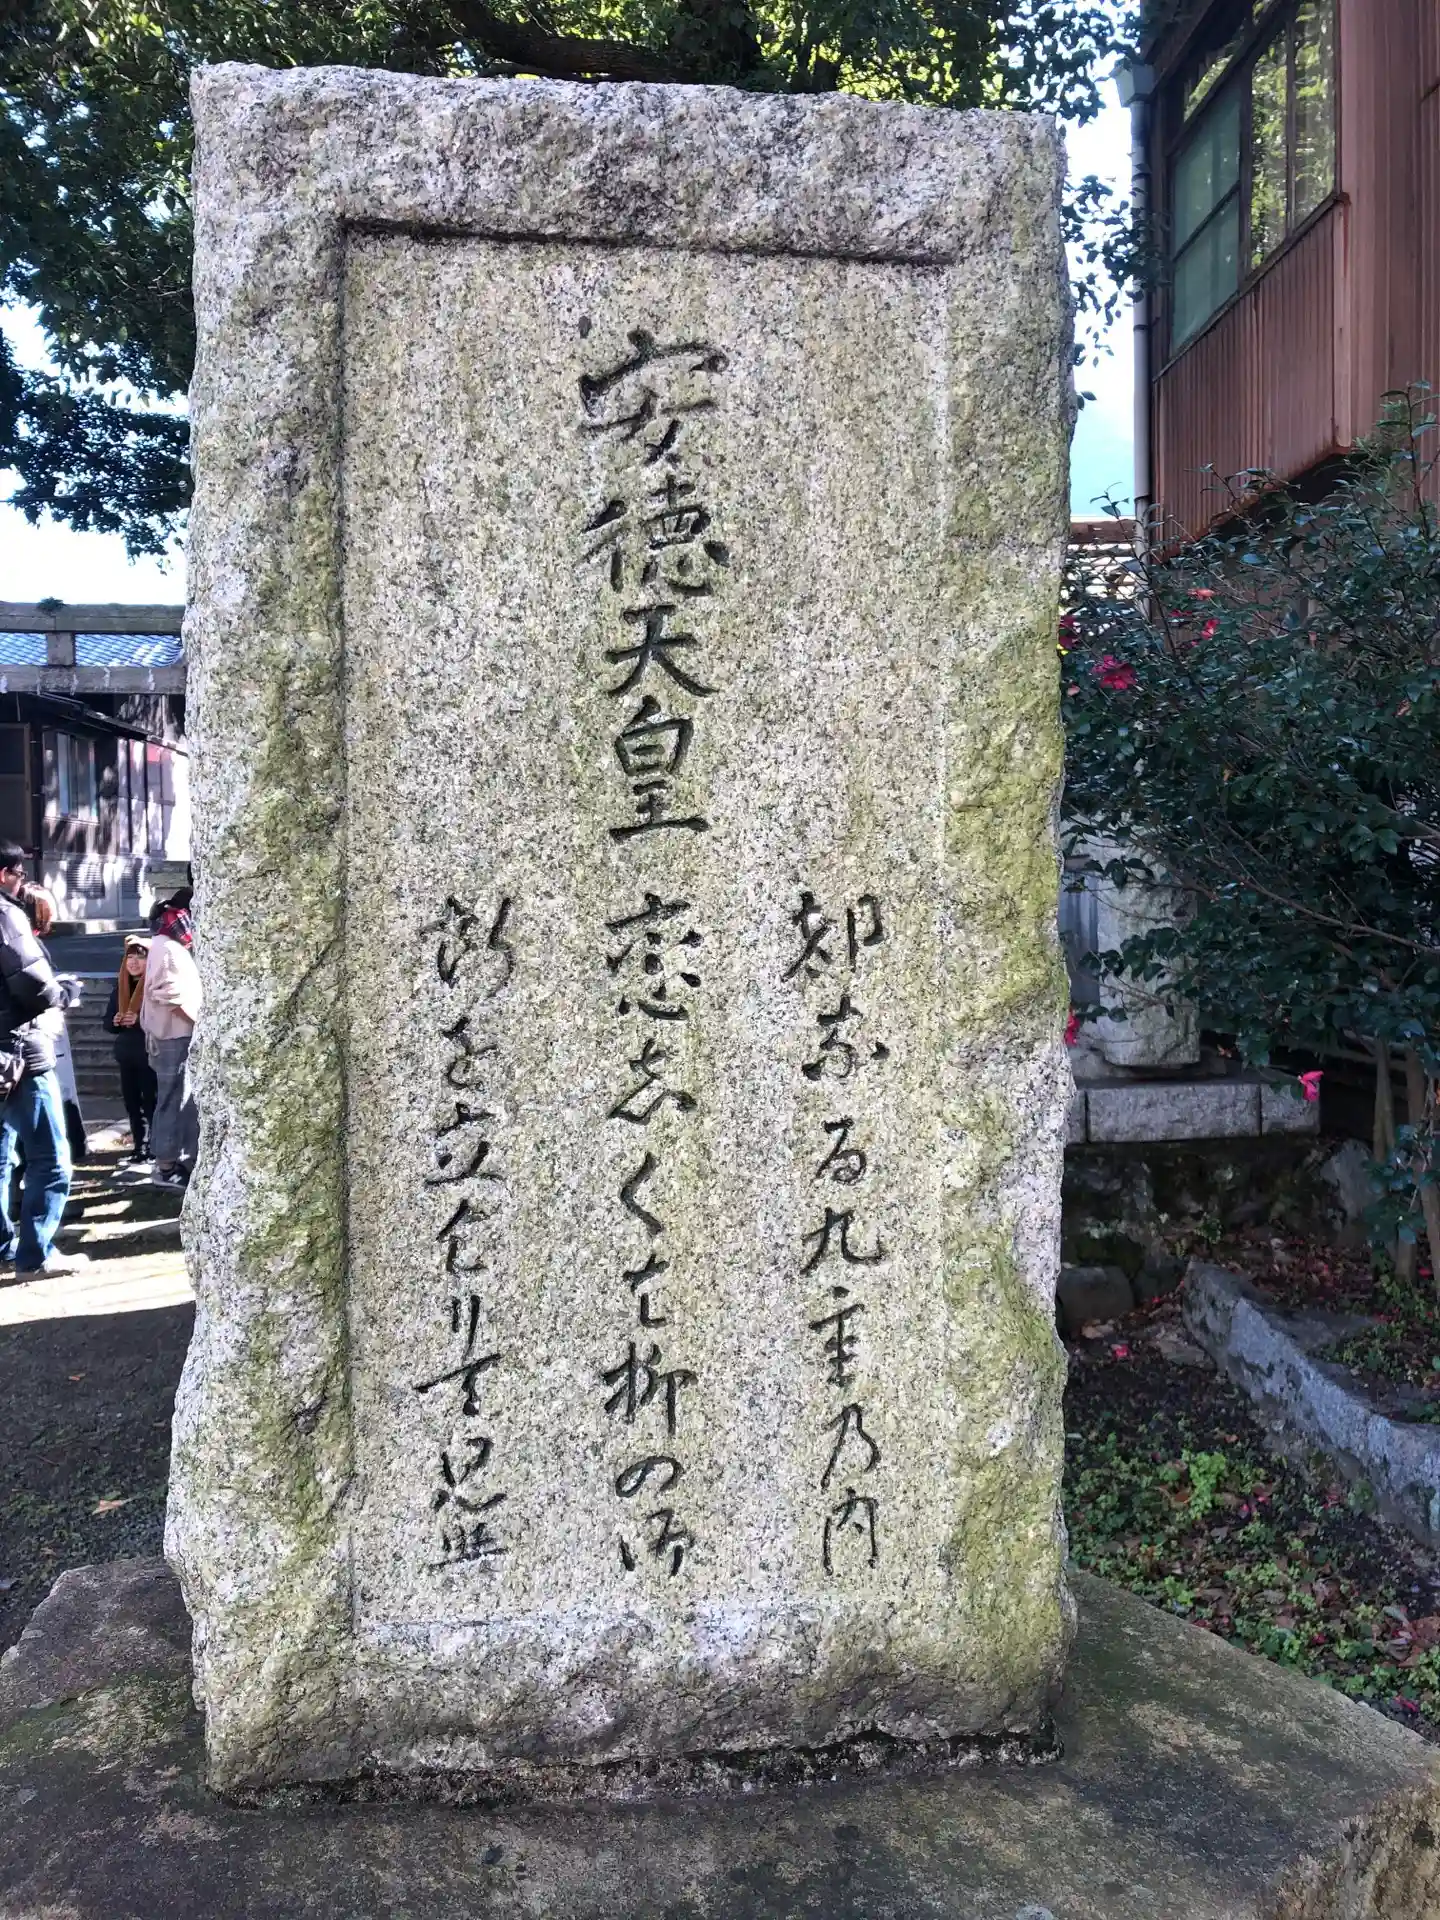 安徳天皇
都奈る九重乃内
恋志くは柳の御
所を立よりて見与